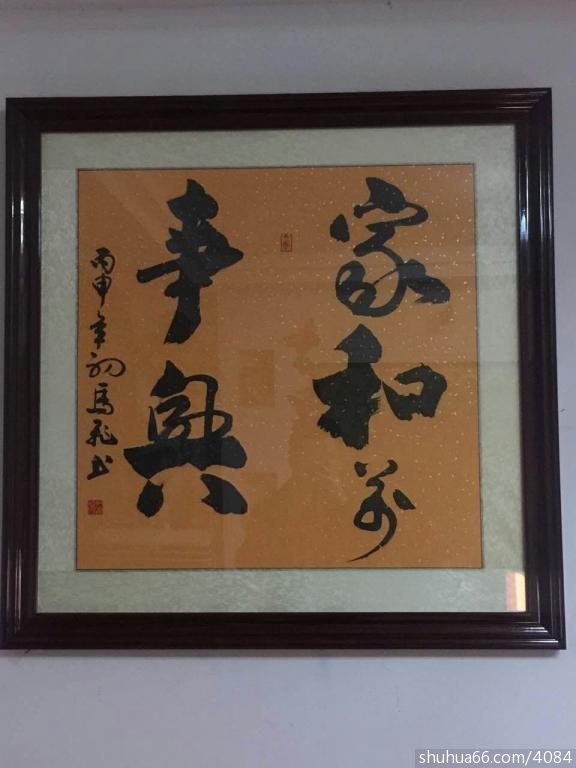 家和萬
事興
丙申年初馬飛書
shuhua66.com/4084